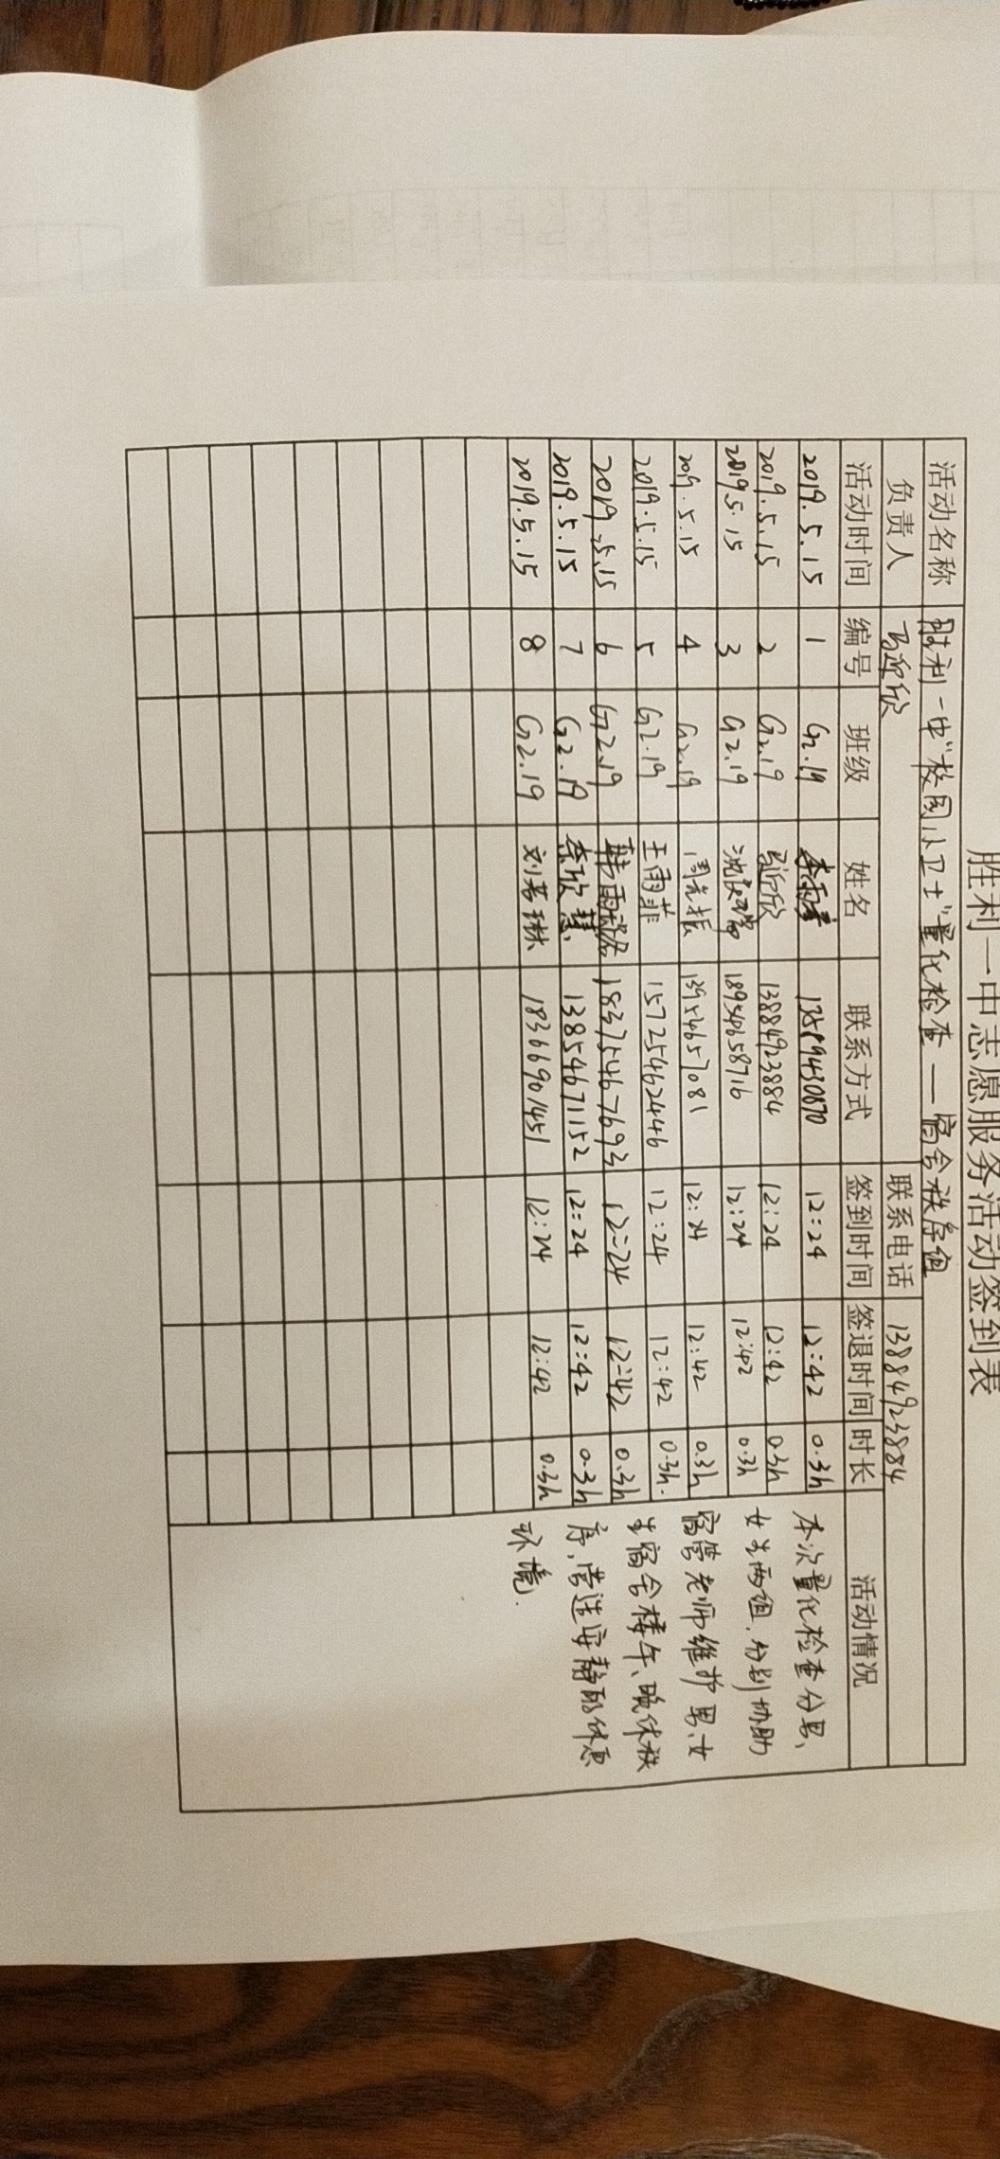 胜利一中志愿服务活动签到表
活动名称 胜利一中"校园小卫士"量化检查——宿舍秩序组
负责人 联系电话 13884923884
活动时间 编号 班级 姓名 联系方式 签到时间 签退时间 时长 活动情况
2019.5.15 1 G2.19 12:24 12:42 0.3h
2019.5.15 2 G2.19 13884923884 12:24 12:42 0.3h
2019.5.15 3 G2.19 18954658716 12:24 12:42 0.3h
2019.5.15 4 G2.19 周光振 13954657081 12:24 12:42 0.3h
2019.5.15 5 G2.19 王雨菲 15725462446 12:24 12:42 0.3h.
2019.5.15 6 G2.19 18375467693 12:24 12:42 0.3h
2019.5.15 7 G2.19 李欣慧 13854671152 12:24 12:42 0.3h
2019.5.15 8 G2.19 刘若琳 18366901451 12:24 12:42 0.3h
本次量化检查分男、
女生两组,分别协助
宿管老师维护男、女
生宿舍楼午、晚休秩
序,营造安静的休息
环境.